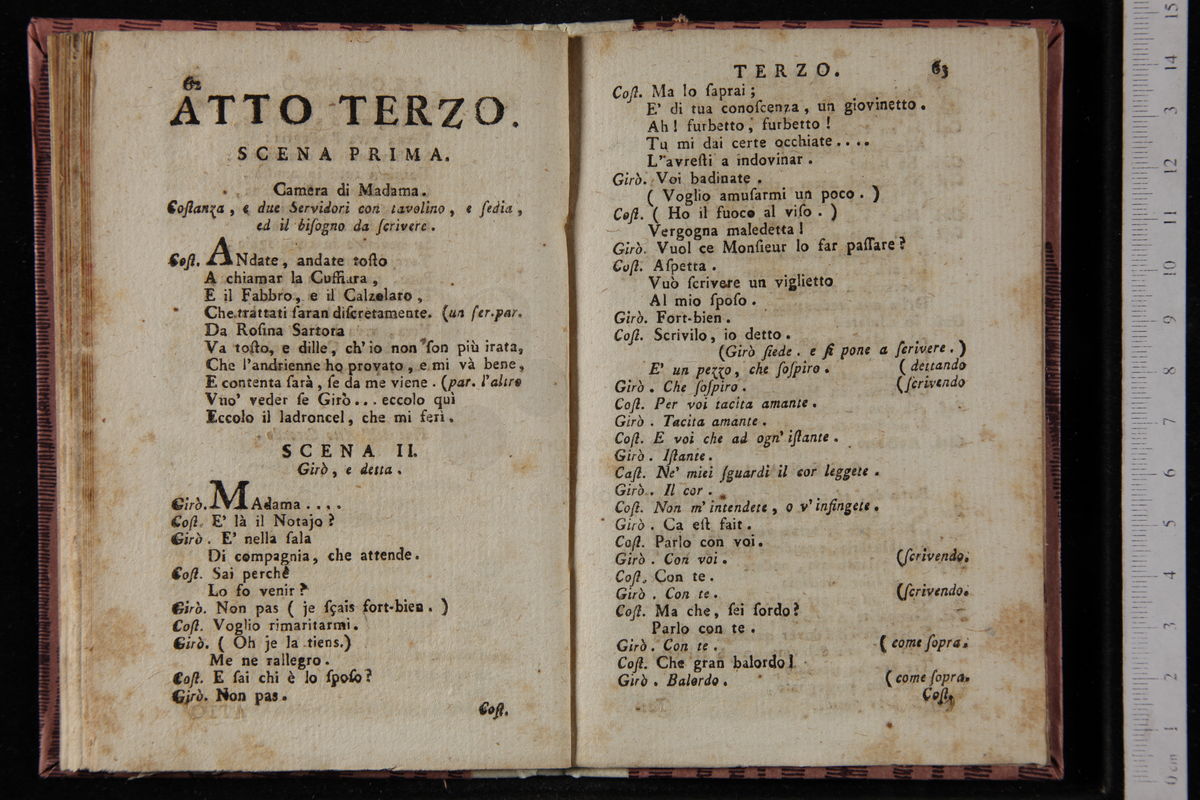 62
ATTO TERZO.
SCENA PRIMA.
Camera di Madama.
Coſtanza, e due Servidori con tavolino, e ſedia,
ed il biſogno da ſcrivere.
Coſt. ANdate, andate toſto
A chiamar la Cuffiara,
E il Fabbro, e il Calzolaro,
Che trattati ſaran diſcretamente. (un ſer. par.
Da Roſina Sartora
Va toſto, e dille, ch'io non ſon più irata,
Che l'andrienne ho provato, e mi và bene,
E contenta ſarà, ſe da me viene. (par. l'altro
Vuo' veder ſe Girò... eccolo quì
Eccolo il ladroncel, che mi ferì.
SCENA II.
Girò, e detta.
Girò. MAdama....
Coſt. E' là il Notajo?
Girò. E' nella ſala
Di compagnia, che attende.
Coſt. Sai perchè
Lo fo venir?
Girò. Non pas ( je ſçais fort-bien. )
Coſt. Voglio rimaritarmi.
Girò. ( Oh je la tiens.)
Me ne rallegro.
Coſt. E ſai chi è lo ſpoſo?
Girò. Non pas.
Coſt.
TERZO. 63
Coſt. Ma lo ſaprai;
E' di tua conoſcenza, un giovinetto.
Ah! furbetto, furbetto!
Tu mi dai certe occhiate....
L'avreſti a indovinar.
Girò. Voi badinate.
( Voglio amuſarmi un poco. )
Coſt. ( Ho il fuoco al viſo. )
Vergogna maledetta!
Girò. Vuol ce Monſieur lo far paſſare?
Coſt. Aſpetta.
Vuò ſcrivere un viglietto
Al mio ſpoſo.
Girò. Fort-bien.
Coſt. Scrivilo, io detto.
(Girò ſiede. e ſi pone a ſcrivere.)
E' un pezzo, che ſoſpiro. ( dettando
Girò. Che ſoſpiro. (ſcrivendo
Coſt. Per voi tacita amante.
Girò. Tacita amante.
Coſt. E voi che ad ogn' iſtante.
Girò. Iſtante.
Caſt. Ne' miei ſguardi il cor leggete.
Girò. Il cor.
Coſt. Non m'intendete, o v'infingete.
Girò. Ca eſt fait.
Coſt. Parlo con voi.
Girò. Con voi. (ſcrivendo.
Coſt. Con te.
Girò. Con te. (ſcrivendo.
Coſt. Ma che, ſei ſordo?
Parlo con te.
Girò. Con te. ( come ſopra.
Coſt. Che gran balordo!
Girò. Balordo. ( come ſopra.
Coſt,
0 cm 1 2 3 4 5 6 7 8 9 10 11 12 13 14 15